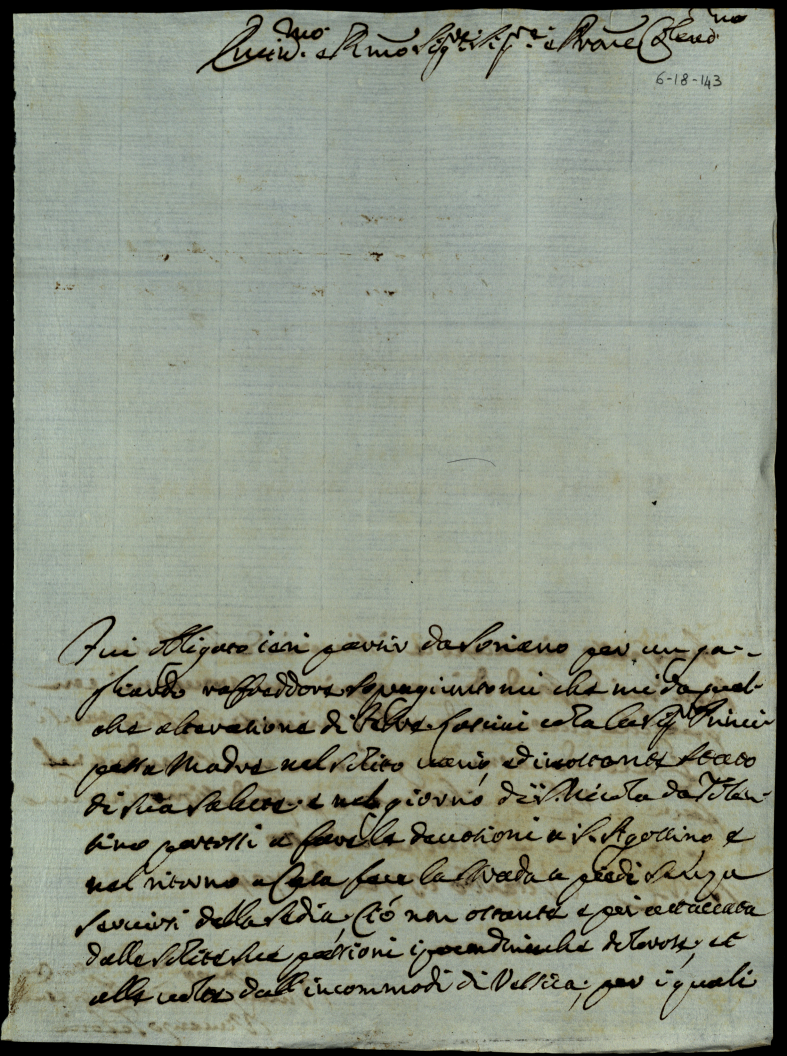 Emin.mo e R.mo Sig.re Sig.re e P'rone Col.mo
6-18-143
Fui obligato ieri partir da Soriano per un ga-
gliardo raffreddore sopragiuntomi che mi dà qual-
che alteratione di febre. Lasciai costà la Sig.ra Princi-
pessa Madre nel solito vario, ed incostante stato
di sua salute; e nel giorno di S. Nicola da Tolen-
tino portossi a fare le devotioni a S. Agostino e
nel ritorno a Casa fece la strada a piedi senza
servirsi della sedia; Ciò non ostante è poi attaccata
dalle solite sue passioni ipocondriache dolorose, et
alle volte dall'incommodi di Vessica; per i quali